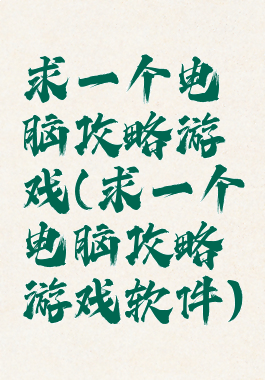 求一个电
脑攻略游
戏(求一个
电脑攻略
游戏软件)